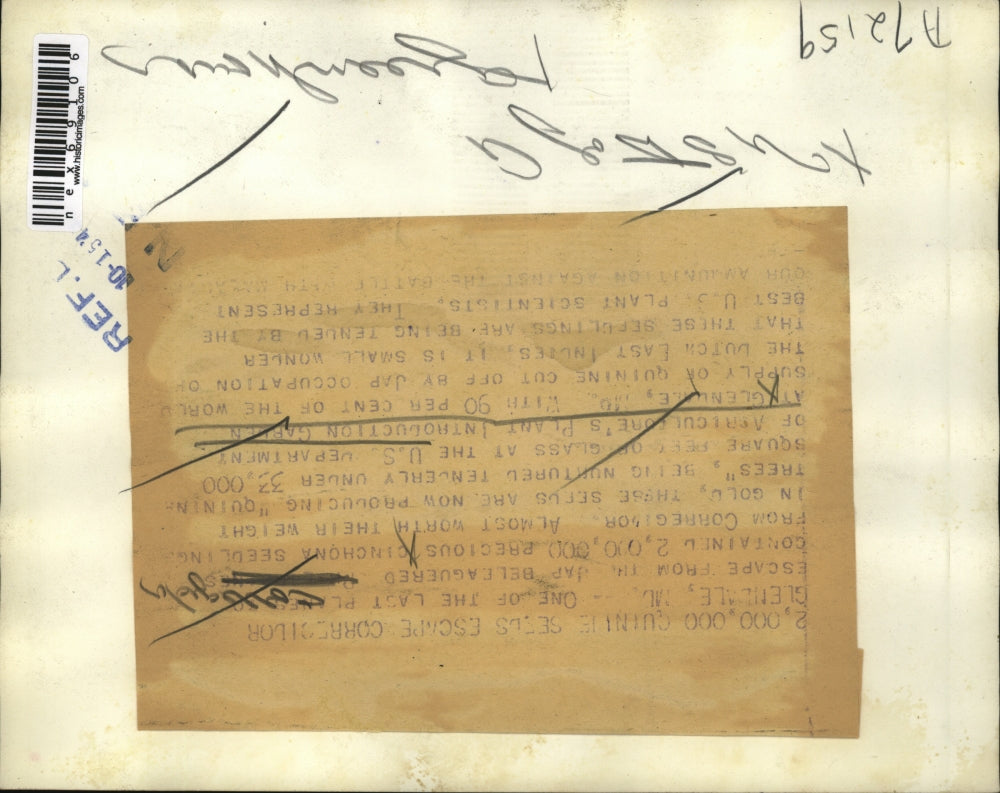 2,000,000 QUININE SEEDS ESCAPE CORREGIDOR
GLENDALE, MD. -- ONE OF THE LAST PLANES TO
ESCAPE FROM THE JAP BELEAGUERED
CONTAINED 2,000,000 PRECIOUS CINCHONA SEEDLINGS
FROM CORREGIDOR. ALMOST WORTH THEIR WEIGHT
IN GOLD, THESE SEEDS ARE NOW PRODUCING "QUININE
TREES", BEING NURTURED TENDERLY UNDER 33,000
SQUARE FEET OF GLASS AT THE U.S. DEPARTMENT
OF AGRICULTURE'S PLANT INTRODUCTION GARDEN
AT GLENDALE, MD. WITH 90 PER CENT OF THE WORLD
SUPPLY OF QUININE CUT OFF BY JAP OCCUPATION OF
THE DUTCH EAST INDIES, IT IS SMALL WONDER
THAT THESE SEEDLINGS ARE BEING TENDED BY THE
BEST U.S. PLANT SCIENTISTS. THEY REPRESENT
OUR AMMUNITION AGAINST THE BATTLE WITH
Greenhouses
A72159
REF. 
10-15
nex69106
www.historicimages.com